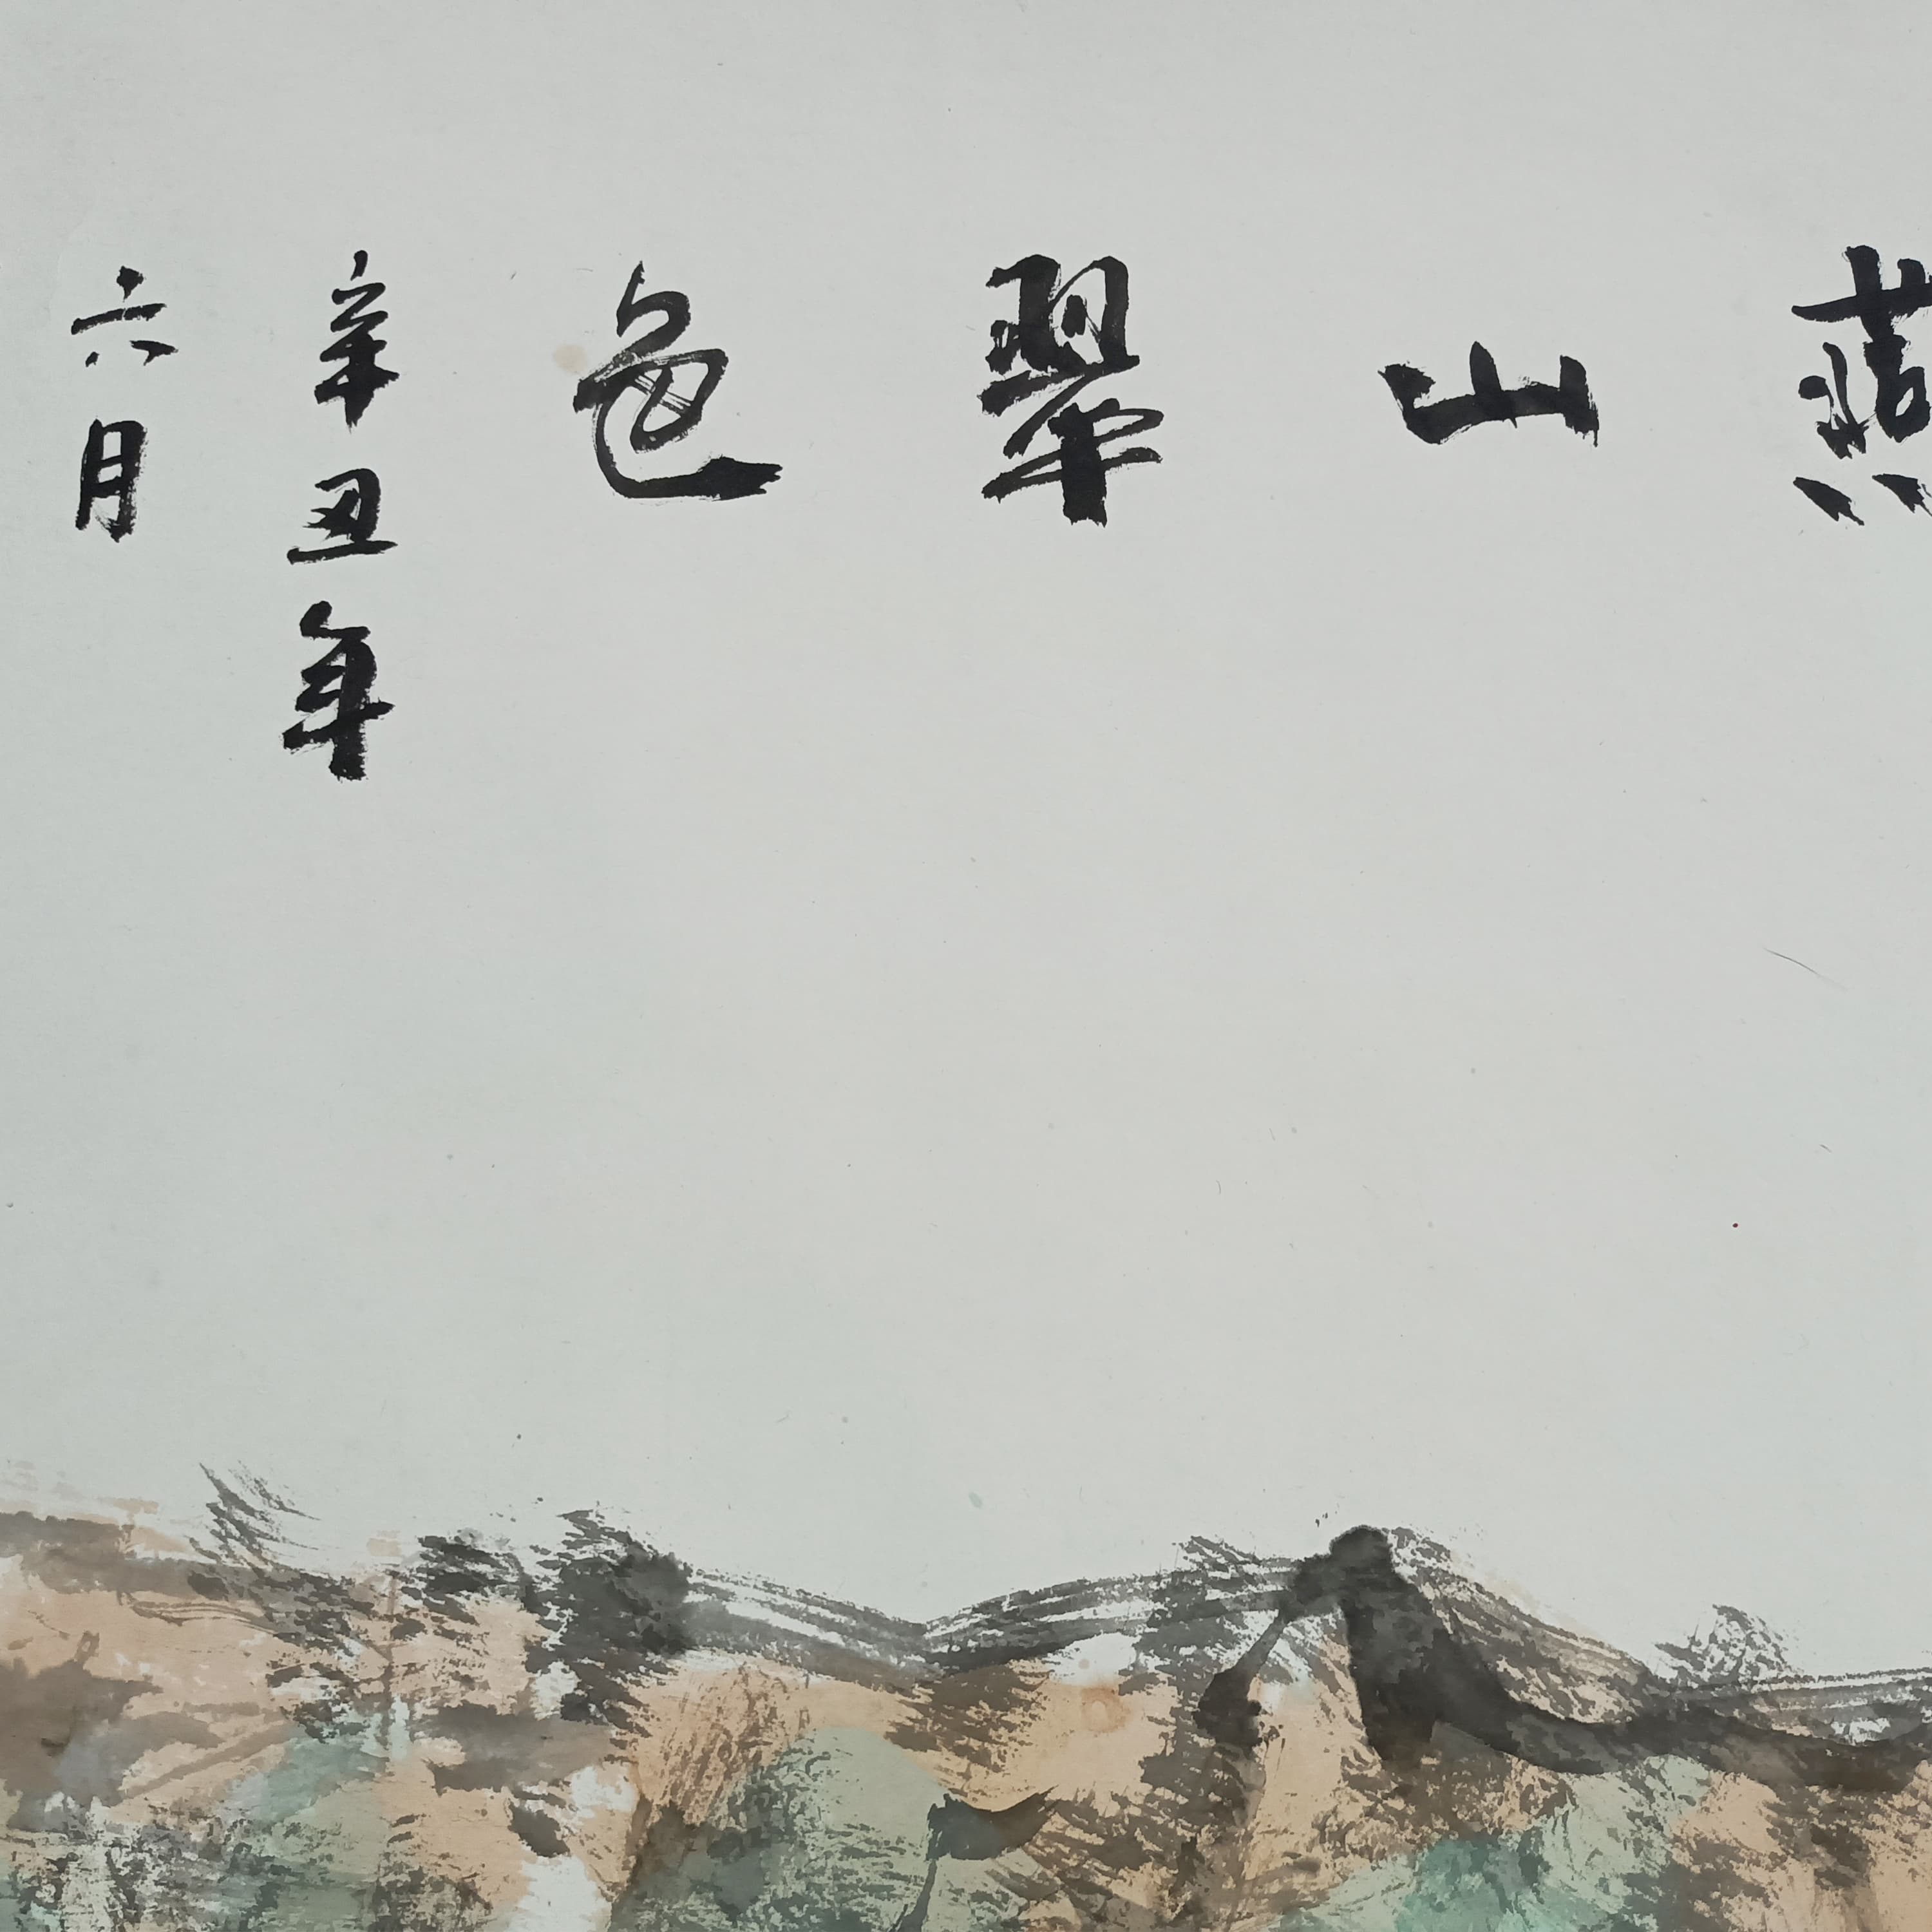 燕山翠色
辛丑年
六月